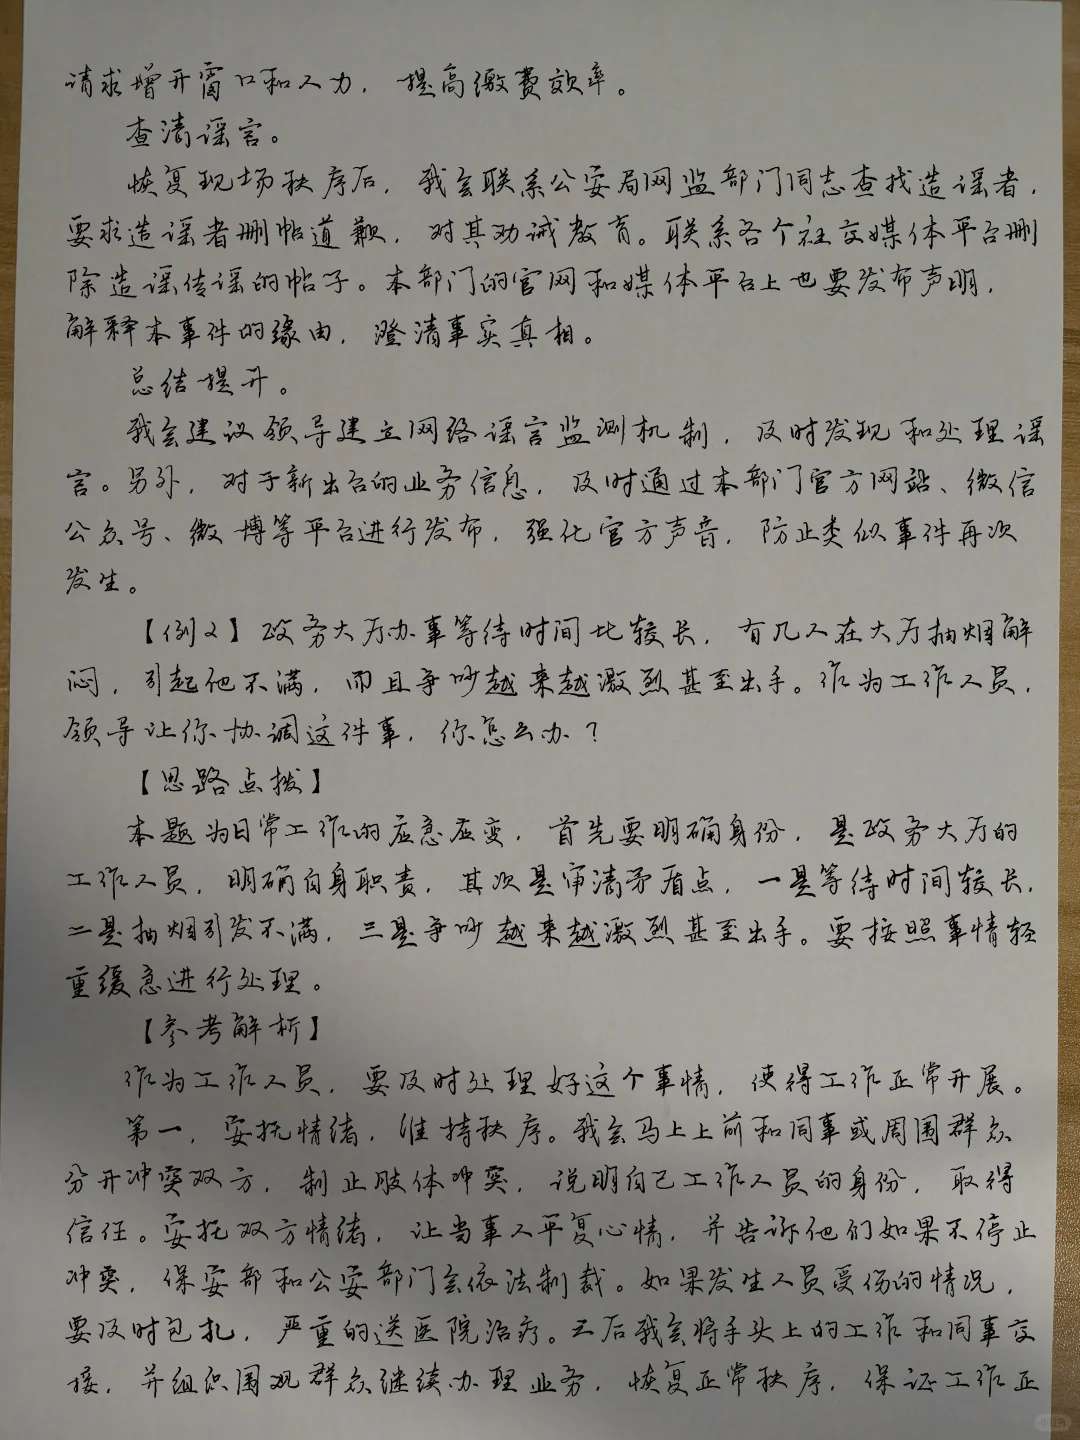 请求增开窗口和人力，提高缴费效率。
查清谣言。
恢复现场秩序后，我会联系公安局网监部门同志查找造谣者，
要求造谣者删帖道歉，对其劝诫教育。联系各个社交媒体平台删
除造谣传谣的帖子。本部门的官网和媒体平台上也要发布声明，
解释本事件的缘由，澄清事实真相。
总结提升。
我会建议领导建立网络谣言监测机制，及时发现和处理谣
言。另外，对于新出台的业务信息，及时通过本部门官方网站、微信
公众号、微博等平台进行发布，强化官方声音，防止类似事件再次
发生。
【例2】政务大厅办事等待时间比较长，有几人在大厅抽烟解
闷，引起他不满，而且争吵越来越激烈甚至出手。作为工作人员，
领导让你协调这件事，你怎么办？
【思路点拨】
本题为日常工作的应急应变，首先要明确身份，是政务大厅的
工作人员，明确自身职责，其次是审清矛盾点，一是等待时间较长，
二是抽烟引发不满，三是争吵越来越激烈甚至出手。要按照事情轻
重缓急进行处理。
【参考解析】
作为工作人员，要及时处理好这个事情，使得工作正常开展。
第一，安抚情绪，维持秩序。我会马上上前和同事或周围群众
分开冲突双方，制止肢体冲突，说明自己工作人员的身份，取得
信任。安抚双方情绪，让当事人平复心情，并告诉他们如果不停止
冲突，保安部和公安部门会依法制裁。如果发生人员受伤的情况，
要及时包扎，严重的送医院治疗。之后我会将手头上的工作和同事交
接，并组织围观群众继续办理业务，恢复正常秩序，保证工作正